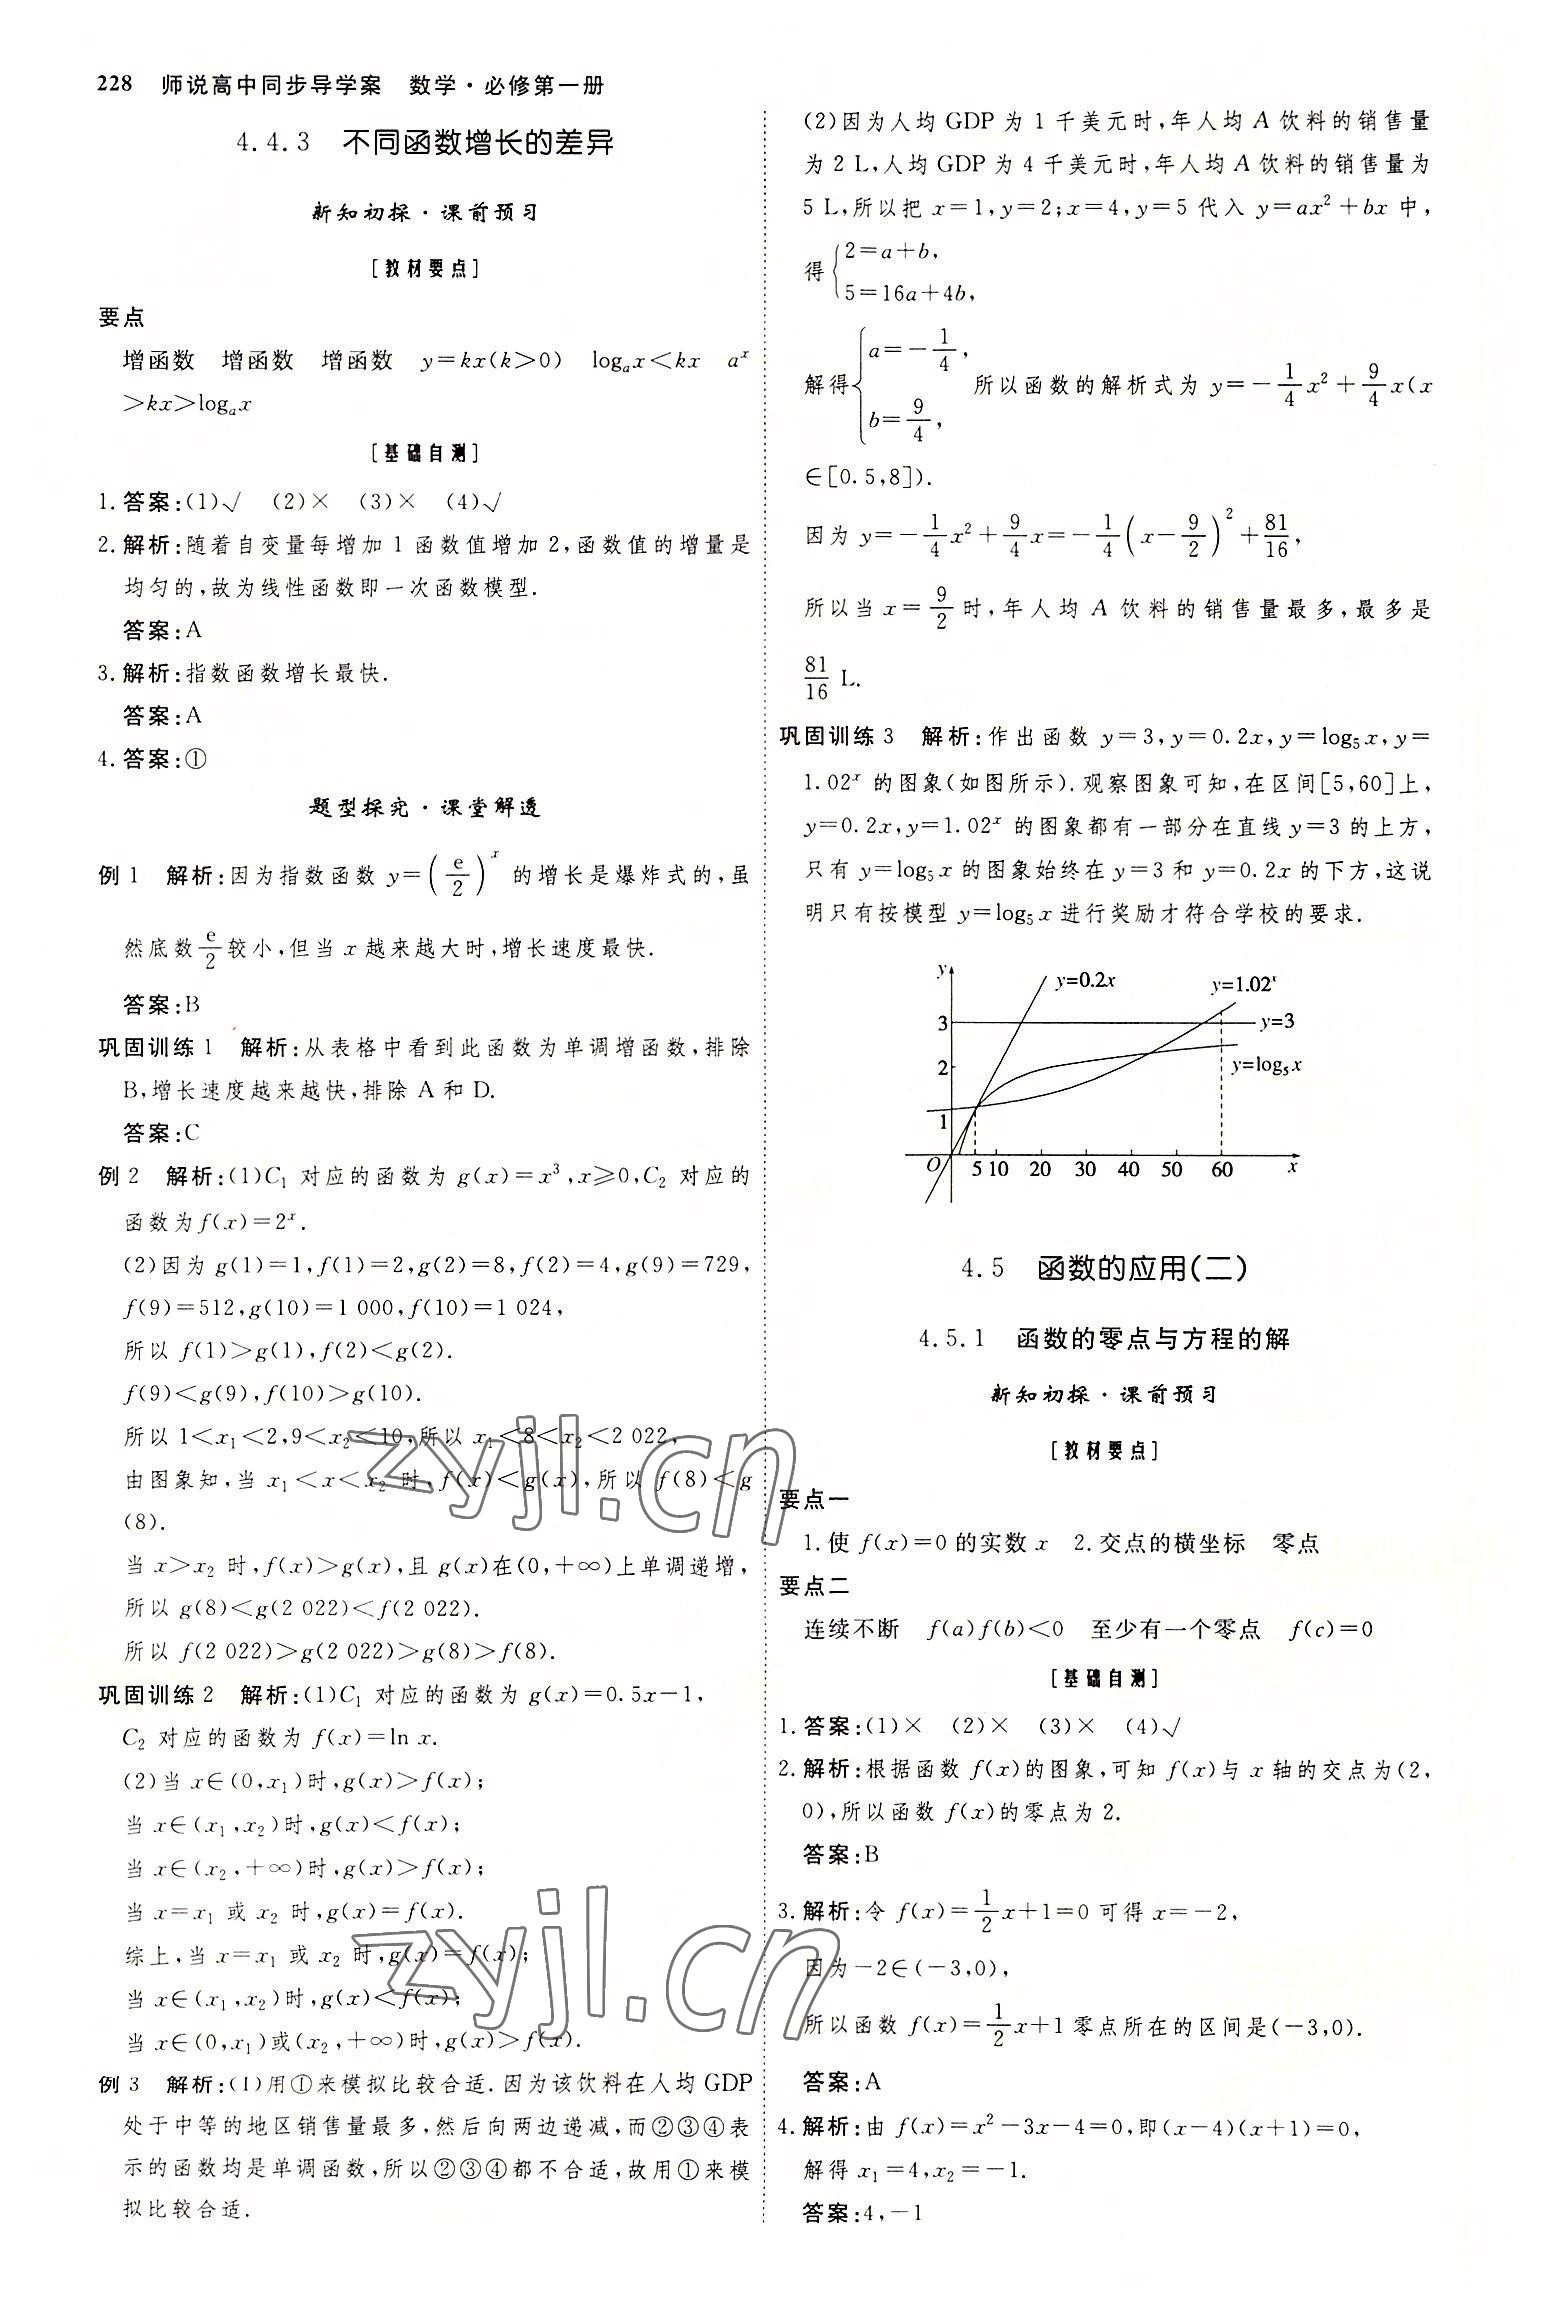 228 师说高中同步导学案 数学·必修第一册
4.4.3 不同函数增长的差异
新知初探·课前预习
[教材要点]
要点
增函数 增函数 增函数 y=kx(k>0) logₐx<kx aˣ
>kx>logₐx
[基础自测]
1.答案:(1)√ (2)× (3)× (4)√
2.解析:随着自变量每增加1函数值增加2,函数值的增量是
均匀的,故为线性函数即一次函数模型.
答案:A
3.解析:指数函数增长最快.
答案:A
4.答案:①
题型探究·课堂解透
例1 解析:因为指数函数 y=(e/2)ˣ 的增长是爆炸式的,虽
然底数e/2较小,但当 x 越来越大时,增长速度最快.
答案:B
巩固训练1 解析:从表格中看到此函数为单调增函数,排除
B,增长速度越来越快,排除 A 和 D.
答案:C
例2 解析:(1)C₁ 对应的函数为 g(x)=x³,x≥0,C₂ 对应的
函数为f(x)=2ˣ.
(2)因为 g(1)=1,f(1)=2,g(2)=8,f(2)=4,g(9)=729,
f(9)=512,g(10)=1 000,f(10)=1 024,
所以 f(1)>g(1),f(2)<g(2).
f(9)<g(9),f(10)>g(10).
所以 1<x₁<2,9<x₂<10,所以 x₁<8<x₂<2 022,
由图象知,当 x₁<x<x₂ 时,f(x)<g(x),所以 f(8)<g
(8).
当 x>x₂ 时,f(x)>g(x),且 g(x)在(0,+∞)上单调递增,
所以 g(8)<g(2 022)<f(2 022).
所以 f(2 022)>g(2 022)>g(8)>f(8).
巩固训练2 解析:(1)C₁ 对应的函数为 g(x)=0.5x-1,
C₂ 对应的函数为 f(x)=ln x.
(2)当 x∈(0,x₁)时,g(x)>f(x);
当 x∈(x₁,x₂)时,g(x)<f(x);
当 x∈(x₂,+∞)时,g(x)>f(x);
当 x=x₁ 或 x₂ 时,g(x)=f(x).
综上,当 x=x₁ 或 x₂ 时,g(x)=f(x);
当 x∈(x₁,x₂)时,g(x)<f(x);
当 x∈(0,x₁)或(x₂,+∞)时,g(x)>f(x).
例3 解析:(1)用①来模拟比较合适.因为该饮料在人均GDP
处于中等的地区销售量最多,然后向两边递减,而②③④表
示的函数均是单调函数,所以②③④都不合适,故用①来模
拟比较合适.
(2)因为人均 GDP 为 1 千美元时,年人均 A 饮料的销售量
为 2 L,人均 GDP 为 4 千美元时,年人均 A 饮料的销售量为
5 L,所以把 x=1,y=2;x=4,y=5 代入 y=ax²+bx 中,
得{2=a+b,
5=16a+4b,
解得{a=-1/4,
b=9/4, 所以函数的解析式为 y=-1/4x²+9/4x(x
∈[0.5,8]).
因为 y=-1/4x²+9/4x=-1/4(x-9/2)²+81/16,
所以当 x=9/2时,年人均 A 饮料的销售量最多,最多是
81/16 L.
巩固训练3 解析:作出函数 y=3,y=0.2x,y=log₅x,y=
1.02ˣ 的图象(如图所示).观察图象可知,在区间[5,60]上,
y=0.2x,y=1.02ˣ 的图象都有一部分在直线 y=3 的上方,
只有 y=log₅x 的图象始终在 y=3 和 y=0.2x 的下方,这说
明只有按模型 y=log₅x 进行奖励才符合学校的要求.
y y=0.2x y=1.02ˣ
3 y=3
2 y=log₅x
1
O 5 10 20 30 40 50 60 x
4.5 函数的应用(二)
4.5.1 函数的零点与方程的解
新知初探·课前预习
[教材要点]
要点一
1.使 f(x)=0 的实数 x 2.交点的横坐标 零点
要点二
连续不断 f(a)f(b)<0 至少有一个零点 f(c)=0
[基础自测]
1.答案:(1)× (2)× (3)× (4)√
2.解析:根据函数 f(x)的图象,可知 f(x)与 x 轴的交点为(2,
0),所以函数 f(x)的零点为 2.
答案:B
3.解析:令 f(x)=1/2x+1=0 可得 x=-2,
因为-2∈(-3,0),
所以函数 f(x)=1/2x+1 零点所在的区间是(-3,0).
答案:A
4.解析:由 f(x)=x²-3x-4=0,即(x-4)(x+1)=0,
解得 x₁=4,x₂=-1.
答案:4,-1
zyjl.cn
zyjl.cn